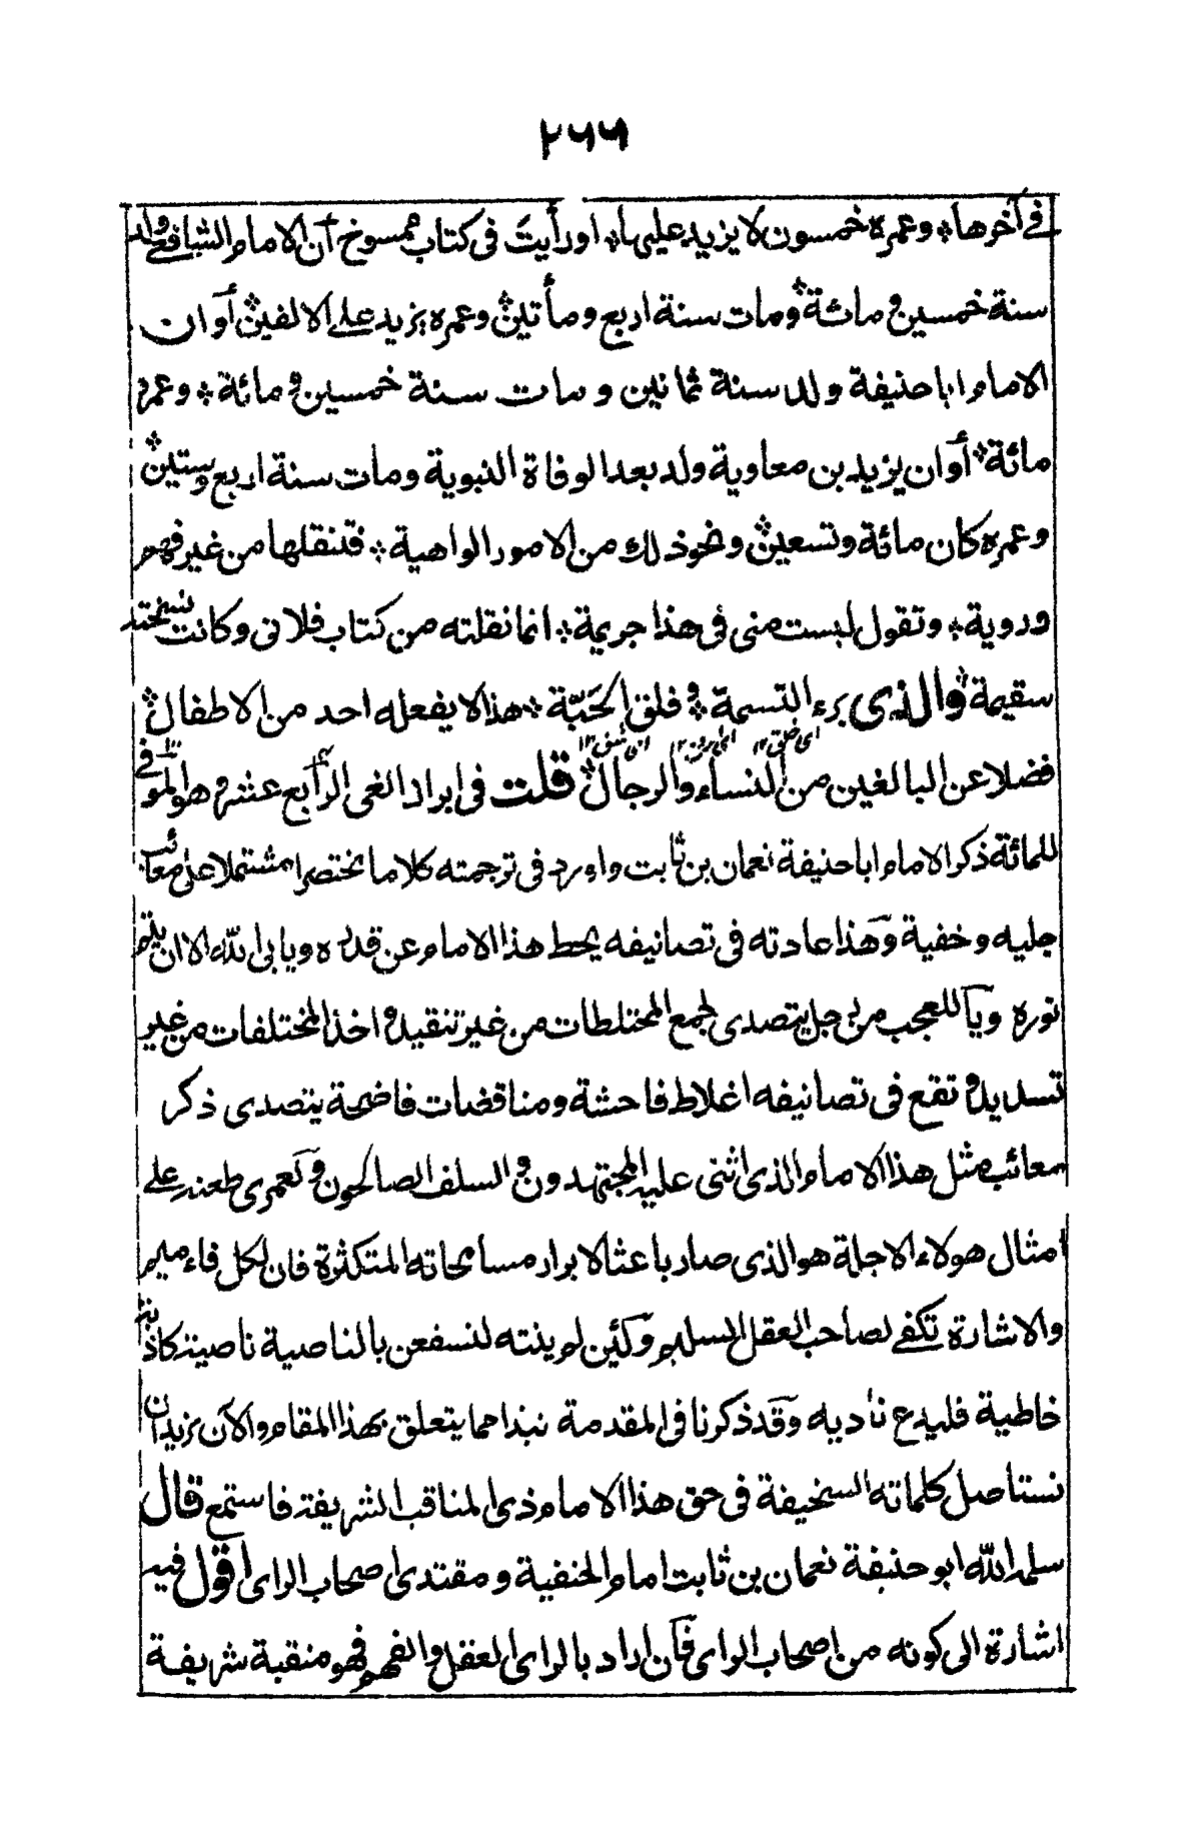 ٢٦٦
في آخرها؞ وعمره خمسون لا يزيد عليها؞ او رأيت في كتاب ممسوخ ان الامام الشافعي ولد
سنة خمسين ومائة؞ ومات سنة اربع ومأتين؞ وعمره يزيد على الالفين؞ او ان
الامام ابا حنيفة ولد سنة ثمانين ومات سنة خمسين ومائة؞ وعمره
مائة؞ او ان يزيد بن معاوية ولد بعد الوفاة النبوية ومات سنة اربع وستين؞
وعمره كان مائة وتسعين؞ ونحو ذلك من الامور الواهية؞ فتنقلها من غير فهم
وروية؞ وتقول ليست مني في هذا جريمة؞ انما نقلته من كتاب فلاني وكانت نسخته
سقيمة؞ والذي برء النسمة؞ وفلق الحَبّة؞ هذا لا يفعله احد من الاطفال؞
اى خلق ١٢ اى شق ١٢
فضلا عن البالغين من النساء والرجال؞ قلت في ابراز الغي الرابع عشر وهو الموفي
للمائة ذكر الامام ابا حنيفة نعمان بن ثابت واورد في ترجمته كلاما مختصرا مشتملا على معائب
جليه وخفية وهذا عادته في تصانيفه يحط هذا الامام عن قدره ويابى الله الا ان يتم
نوره ويا للعجب من رجل يتصدى لجمع المختلطات من غير تنقيد واخذ المختلفات من غير
تسديد وتقع في تصانيفه اغلاط فاحشة ومناقضات فاضحة يتصدى ذكر
معائب مثل هذا الامام الذي اثنى عليه المجتهدون والسلف الصالحون ولعمري طعنه على
امثال هولاء الاجلة هو الذي صار باعثا لابراز مسامحاته المتكثرة فان لكل فاء ميم
والاشارة تكفي لصاحب العقل السليم ولئن لم ينته لنسفعن بالناصية ناصية كاذبة
خاطية فليدع ناديه وقد ذكرنا في المقدمة نبذا مما يتعلق بهذا المقام والآن نريد ان
نستاصل كلماته السخيفة في حق هذا الامام ذي المناقب الشريفة فاستمع قال
سلمه الله ابو حنيفة نعمان بن ثابت امام الحنفية ومقتدى اصحاب الراى اقول فيه
اشارة الى كونه من اصحاب الراى فان اراد بالراى العقل والفهم فهو منقبة شريفة